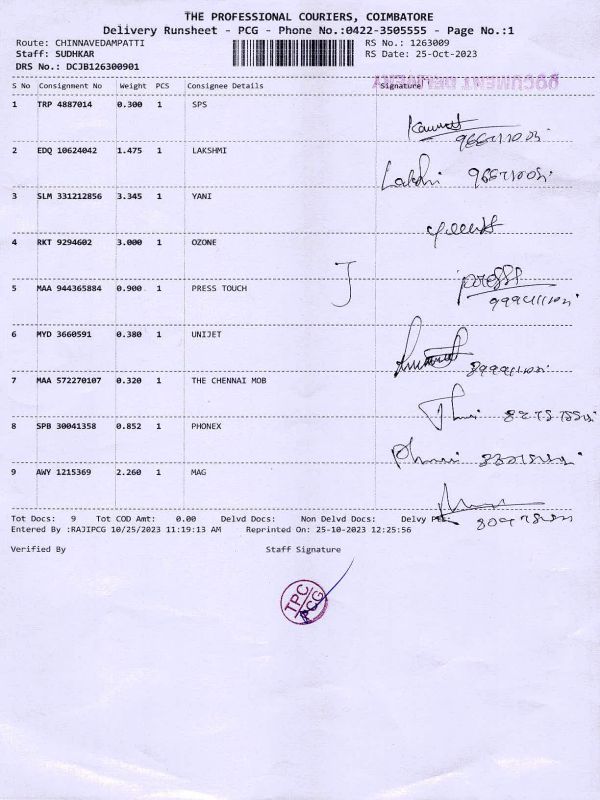 THE PROFESSIONAL COURIERS, COIMBATORE
Delivery Runsheet - PCG - Phone No.:0422-3505555 - Page No.:1
Route: CHINNAVEDAMPATTI RS No.: 1263009
Staff: SUDHKAR RS Date: 25-Oct-2023
DRS No.: DCJB126300901
DOCUMENT
S No Consignment No Weight PCS Consignee Details Signature
1 TRP 4887014 0.300 1 SPS
2 EDQ 10624042 1.475 1 LAKSHMI
Lakshi
3 SLM 331212856 3.345 1 YANI
4 RKT 9294602 3.000 1 OZONE
5 MAA 944365884 0.900 1 PRESS TOUCH
6 MYD 3660591 0.380 1 UNIJET
7 MAA 572270107 0.320 1 THE CHENNAI MOB
8 SPB 30041358 0.852 1 PHONEX
9 AWY 1215369 2.260 1 MAG
Tot Docs: 9 Tot COD Amt: 0.00 Delvd Docs: Non Delvd Docs: Delvy
Entered By :RAJIPCG 10/25/2023 11:19:13 AM Reprinted On: 25-10-2023 12:25:56
Verified By Staff Signature
TPC
PCG